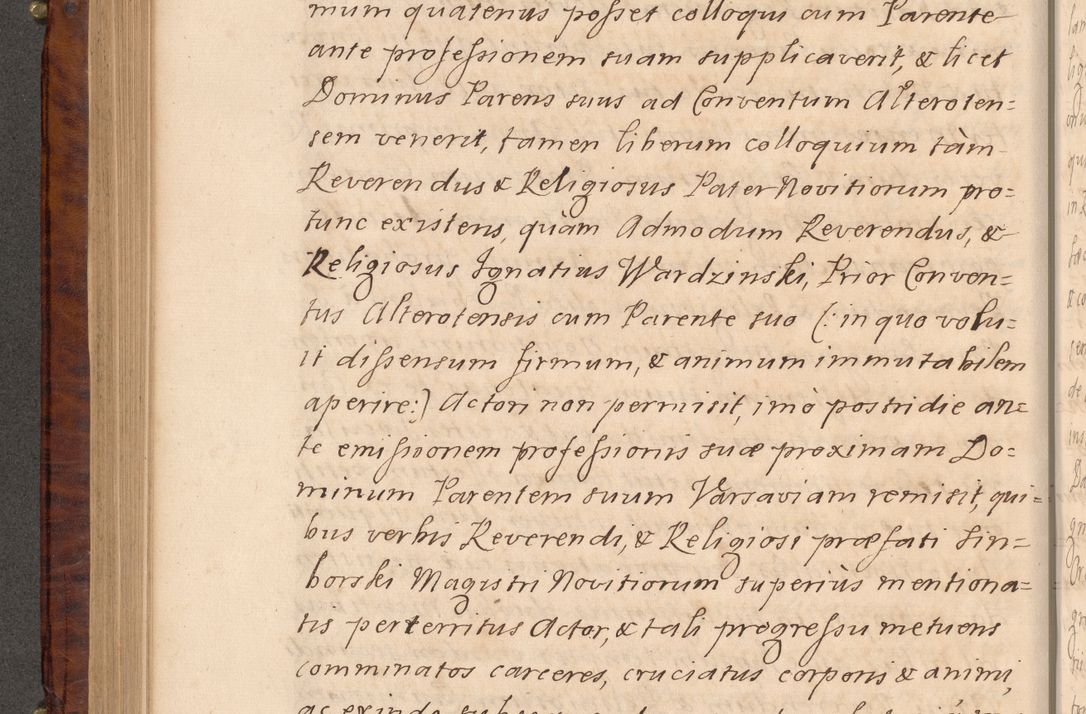 mum quatenus posset colloqui cum Parente
ante professionem suam supplicaverit, & licet
Dominus Parens suus ad Conventum Alteroten=
sem venerit, tamen liberum colloquium tàm
Reverendus & Religiosus Pater Novitiorum pro=
tunc existens, quàm Admodum Reverendus, &
Religiosus Ignatius Wardzinski, Prior Conven=
tus Alterotensis cum Parente suo (: in quo volu=
it dissensum firmum, & animum immutabilem
aperire:) Actori non permisit, imò postridie an=
te emissionem professionis suæ proximam Do=
minum Parentem suum Varsaviam remisit, qui=
bus verbis Reverendi, & Religiosi præfati Lin=
borski Magistri Novitiorum superiùs mentiona=
tis perterritus Actor, & tali progressu metuens
comminatos carceres, cruciatus corporis & animi,
ac exinde